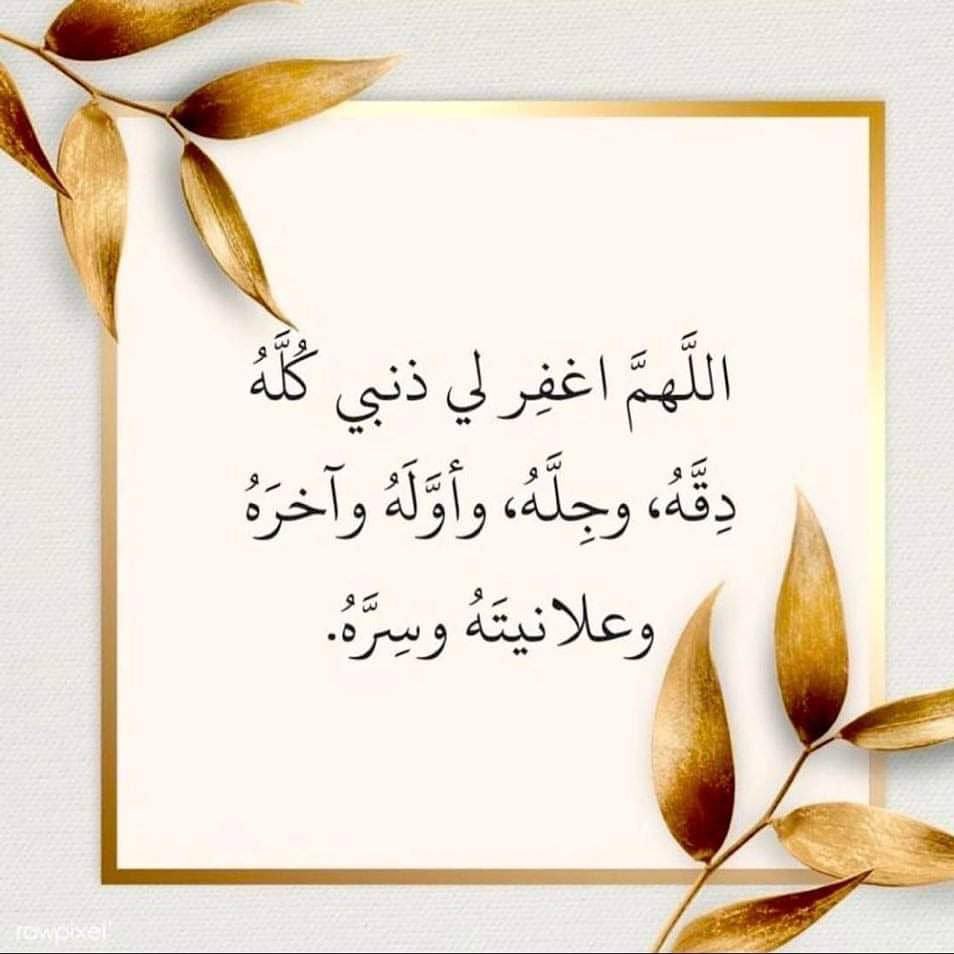 اللَّهمَّ اغفِر لي ذنبي كُلَّهُ
دِقَّهُ، وجِلَّهُ، وأوَّلَهُ وآخرَهُ
وعلانيتَهُ وسِرَّهُ.
rawpixel